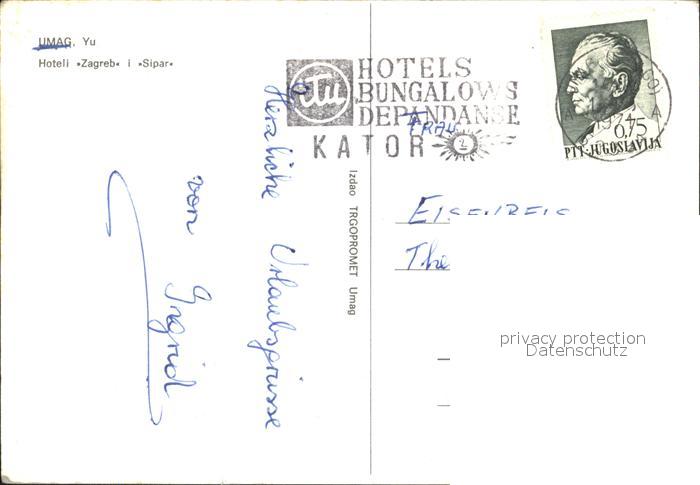 UMAG, Yu
Hoteli »Zagreb« i »Sipar«
Herzliche Urlaubsgrüsse
von Ingrid
Izdao TRGOPROMET Umag
HOTELS
BUNGALOWS
DEPANDANSE
KATOR
1974
0,75
PTT·JUGOSLAVIJA
FRAU
privacy protection
Datenschutz